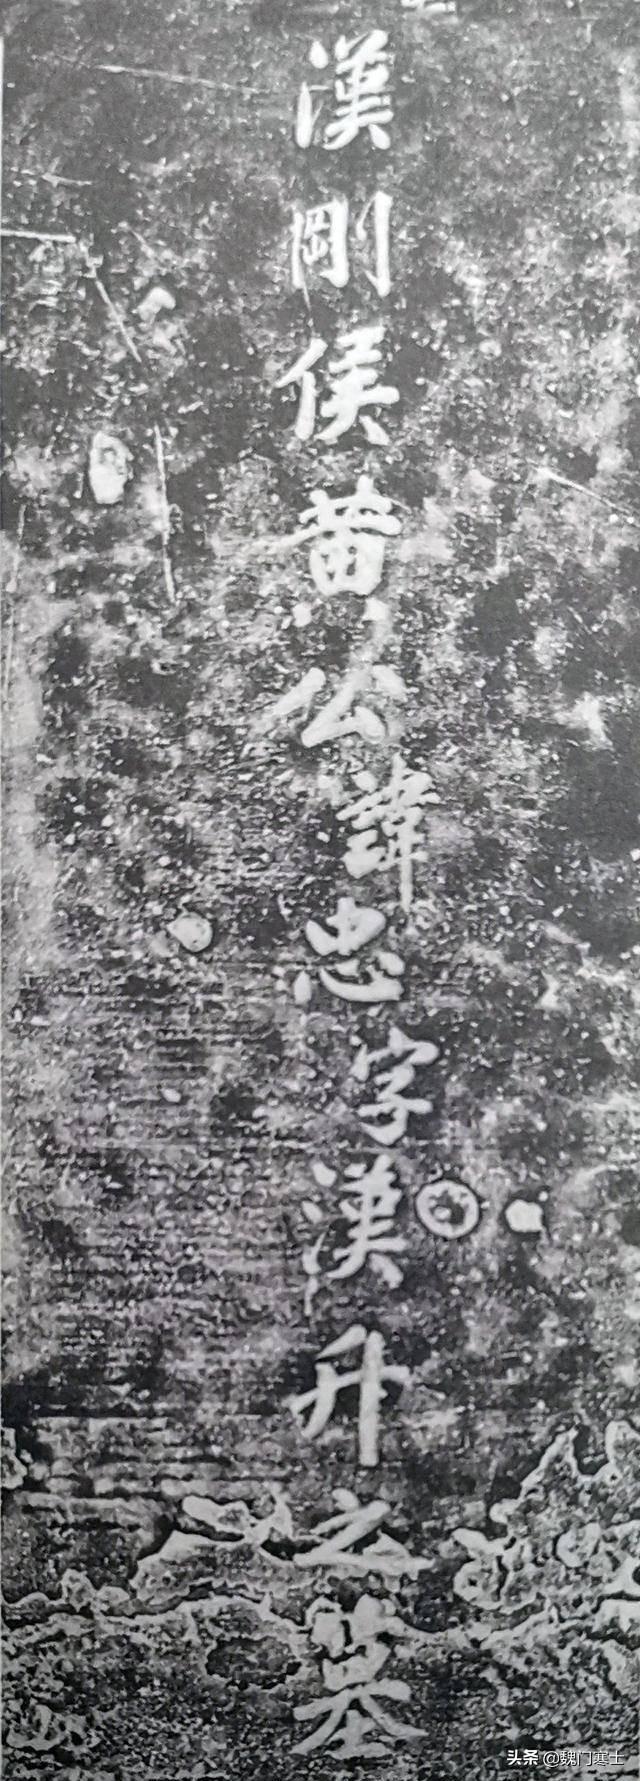 漢剛侯黄公諱忠字漢升之墓
头条 @魏门寒士